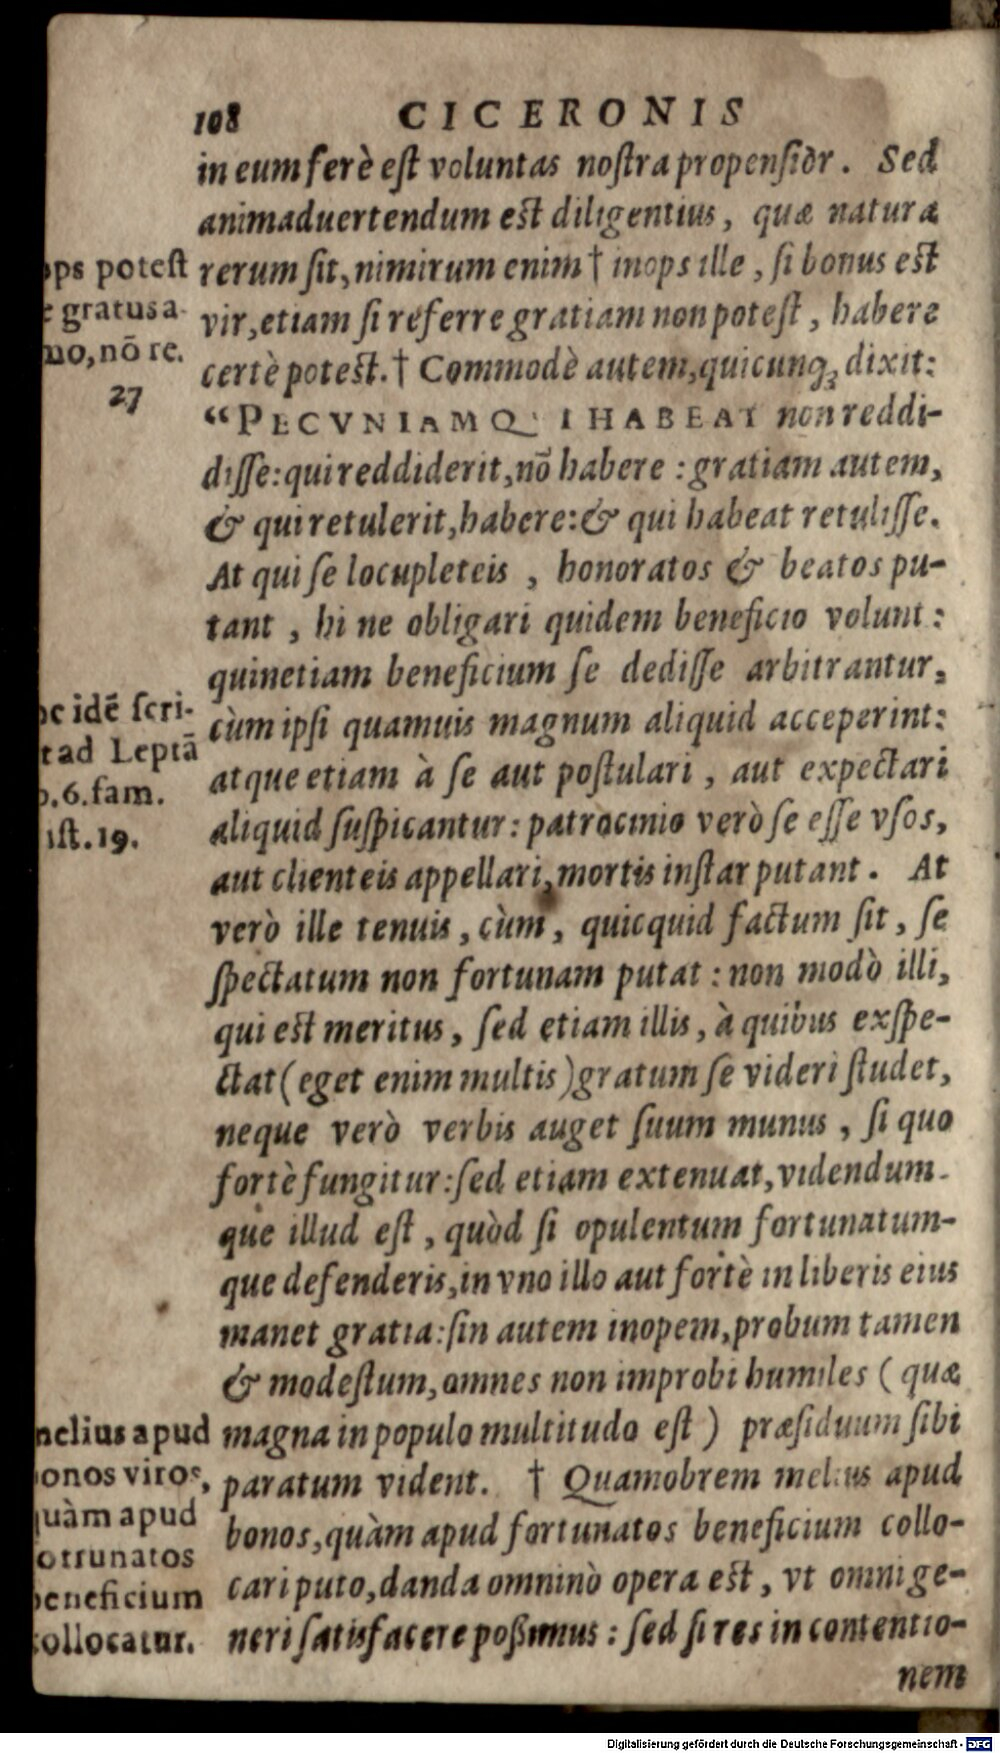 108 CICERONIS
in eum ferè est voluntas nostra propensiòr. Sed
animaduertendum est diligentius, quæ natura
rerum sit, nimirum enim † inops ille, si bonus est
vir, etiam si referre gratiam non potest, habere
certè potest. † Commodè autem, quicunq; dixit:
“PECVNIAM QVI HABEAT non reddi-
disse: qui reddiderit, nō habere: gratiam autem,
& qui retulerit, habere: & qui habeat retulisse.
At qui se locupleteis, honoratos & beatos pu-
tant, hi ne obligari quidem beneficio volunt:
quinetiam beneficium se dedisse arbitrantur,
cùm ipsi quamuis magnum aliquid acceperint:
atque etiam à se aut postulari, aut expectari
aliquid suspicantur: patrocinio verò se esse vsos,
aut clienteis appellari, mortis instar putant. At
verò ille tenuis, cùm, quicquid factum sit, se
spectatum non fortunam putat: non modò illi,
qui est meritus, sed etiam illis, à quibus exspe-
ctat (eget enim multis) gratum se videri studet,
neque verò verbis auget suum munus, si quo
fortè fungitur: sed etiam extenuat, videndum-
que illud est, quòd si opulentum fortunatum-
que defenderis, in vno illo aut fortè in liberis eius
manet gratia: sin autem inopem, probum tamen
& modestum, omnes non improbi humiles (quæ
magna in populo multitudo est) præsiduum sibi
paratum vident. † Quamobrem melius apud
bonos, quàm apud fortunatos beneficium collo-
cari puto, danda omninò opera est, vt omni ge-
neri satisfacere poßimus: sed si res in contentio-
nem
ops potest
e gratus a-
mo, nō re.
27
oc idē scri-
t ad Leptā
b. 6. fam.
ist. 19.
melius apud
bonos viros,
quàm apud
fotrunatos
beneficium
collocatur.
Digitalisierung gefördert durch die Deutsche Forschungsgemeinschaft - DFG